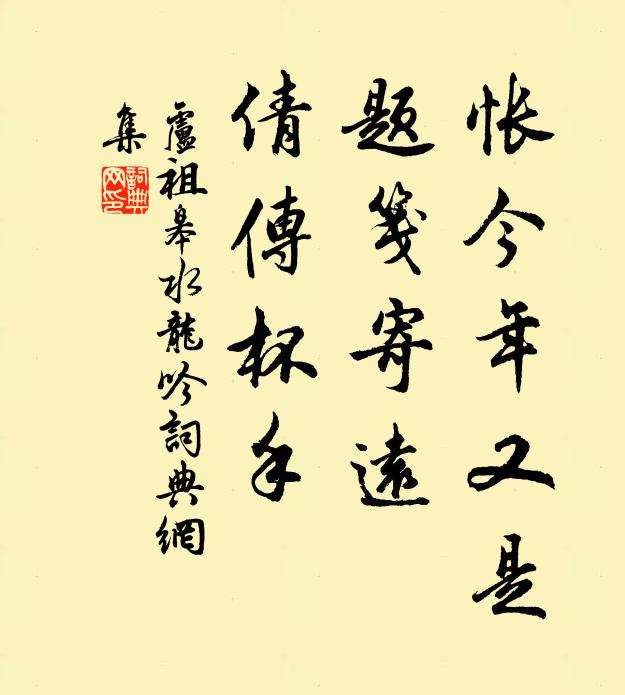 悵今年又是
題箋寄遠
倩傳杯手
盧祖皋水龍吟詞典網
集
詞典
网印